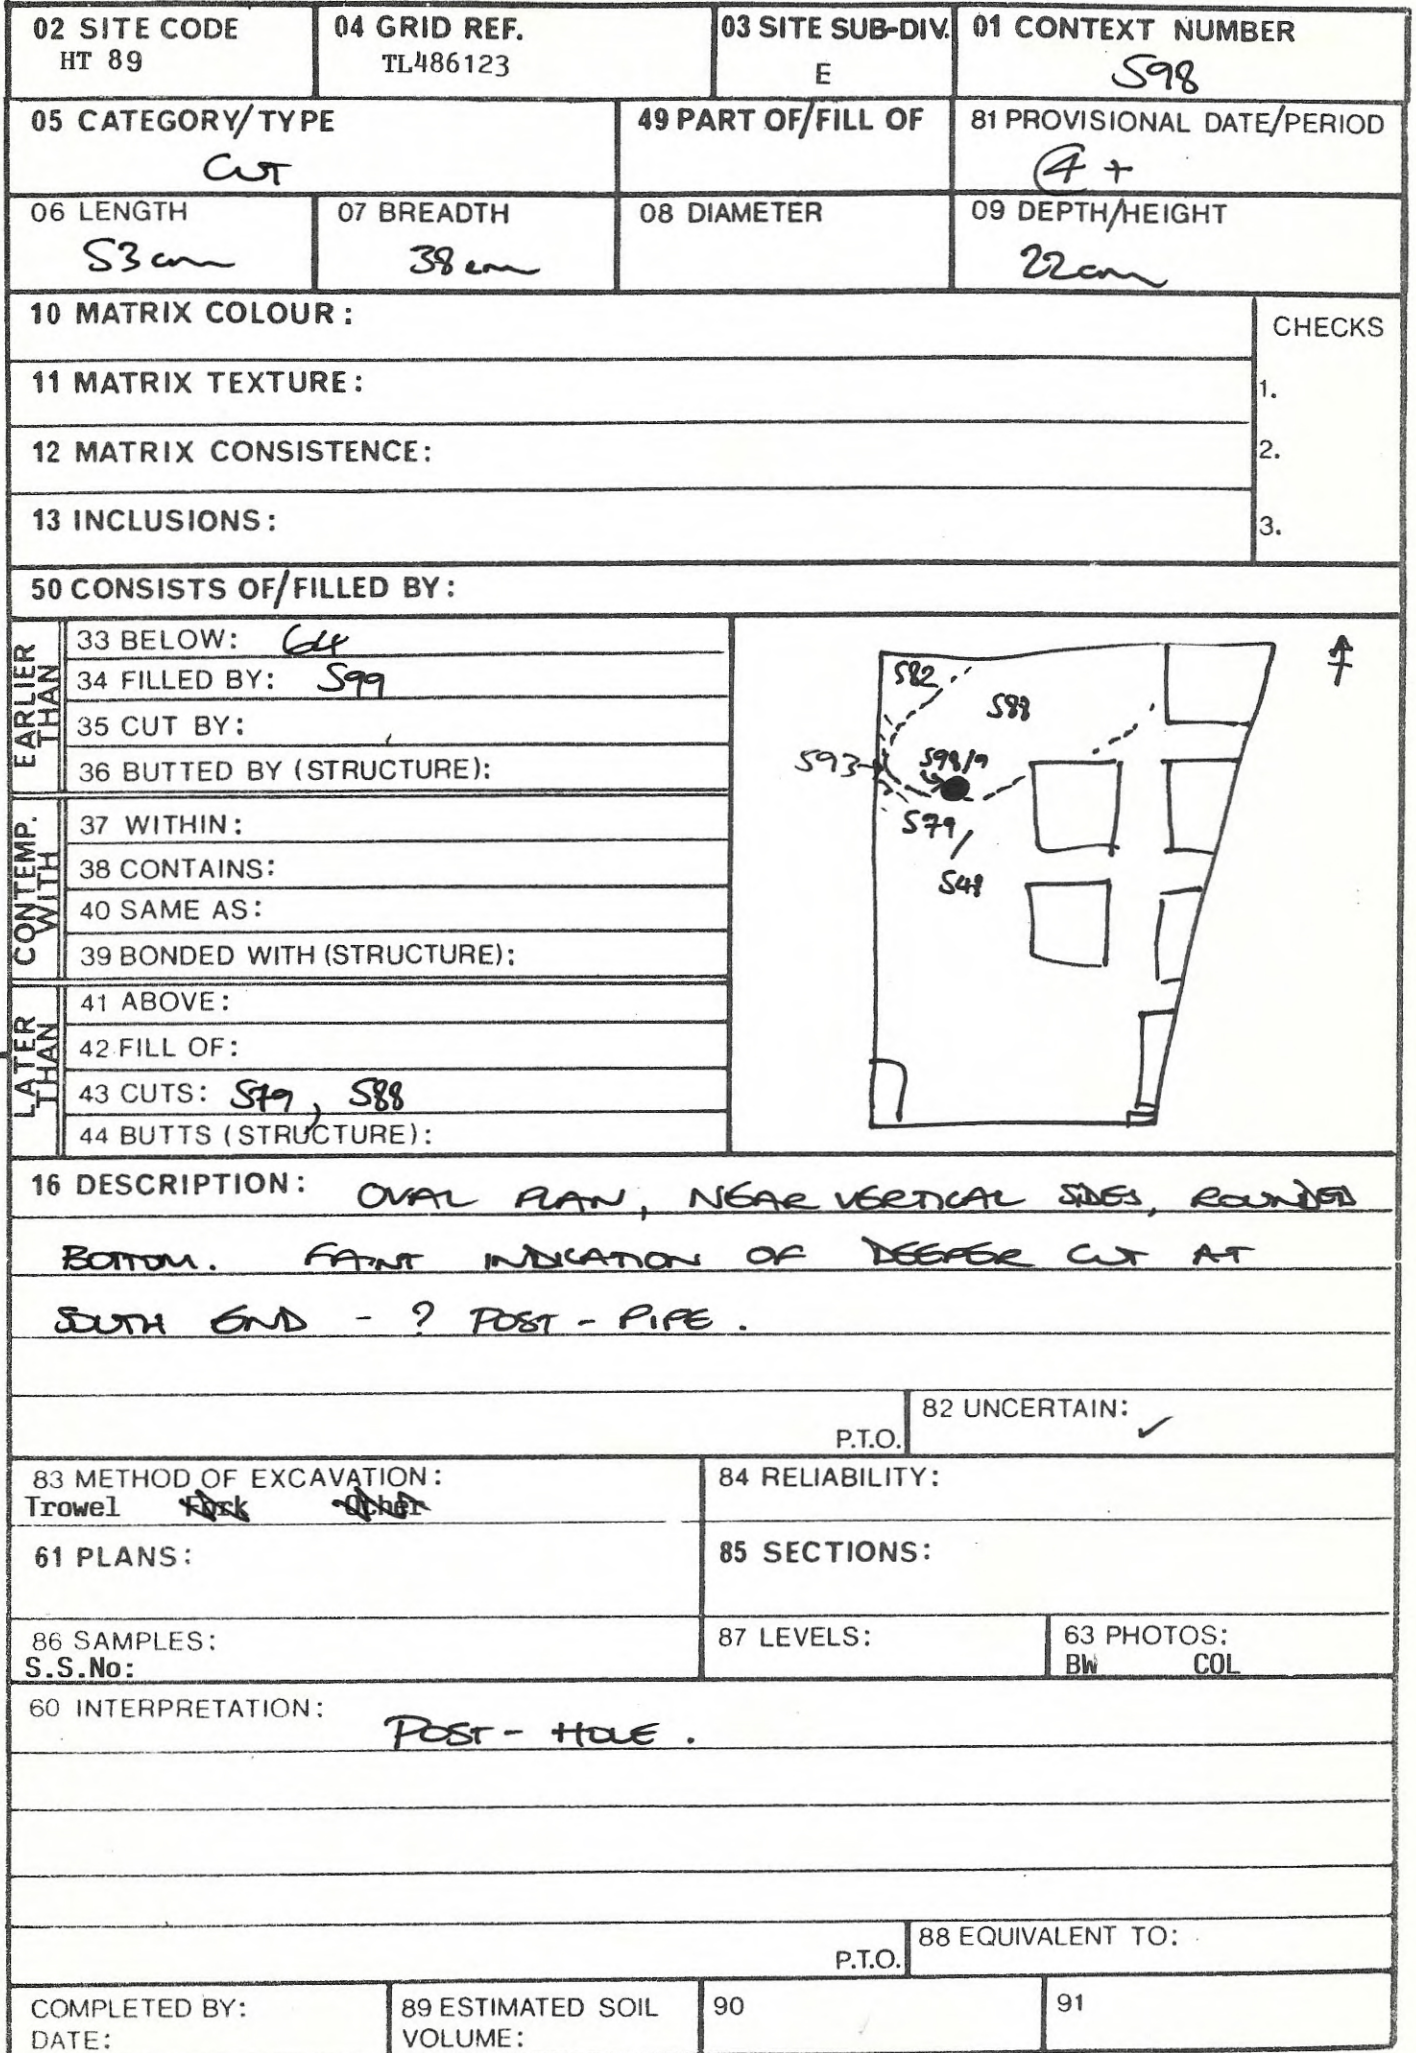 02 SITE CODE
HT 89
04 GRID REF.
TL486123
03 SITE SUB-DIV.
E
01 CONTEXT NUMBER
598
05 CATEGORY/TYPE
CUT
49 PART OF/FILL OF
81 PROVISIONAL DATE/PERIOD
4 +
06 LENGTH
53 cm
07 BREADTH
38 cm
08 DIAMETER
09 DEPTH/HEIGHT
22cm
10 MATRIX COLOUR :
CHECKS
11 MATRIX TEXTURE :
1.
12 MATRIX CONSISTENCE:
2.
13 INCLUSIONS :
3.
50 CONSISTS OF/FILLED BY :
EARLIER THAN
33 BELOW:
34 FILLED BY: 599
35 CUT BY:
36 BUTTED BY (STRUCTURE):
CONTEMP. WITH
37 WITHIN :
38 CONTAINS:
40 SAME AS:
39 BONDED WITH (STRUCTURE):
LATER THAN
41 ABOVE:
42 FILL OF:
43 CUTS: 579, 588
44 BUTTS (STRUCTURE):
582
588
593
598/9
579/
548
16 DESCRIPTION: OVAL PLAN, NEAR VERTICAL SIDES, ROUNDED
BOTTOM. FAINT INDICATION OF DEEPER CUT AT
SOUTH END - ? POST - PIPE.
P.T.O.
82 UNCERTAIN: ✓
83 METHOD OF EXCAVATION:
Trowel Fork Other
84 RELIABILITY:
61 PLANS:
85 SECTIONS:
86 SAMPLES:
S.S.No:
87 LEVELS:
63 PHOTOS:
BW COL
60 INTERPRETATION:
POST - HOLE.
P.T.O.
88 EQUIVALENT TO:
COMPLETED BY:
DATE:
89 ESTIMATED SOIL
VOLUME:
90
91